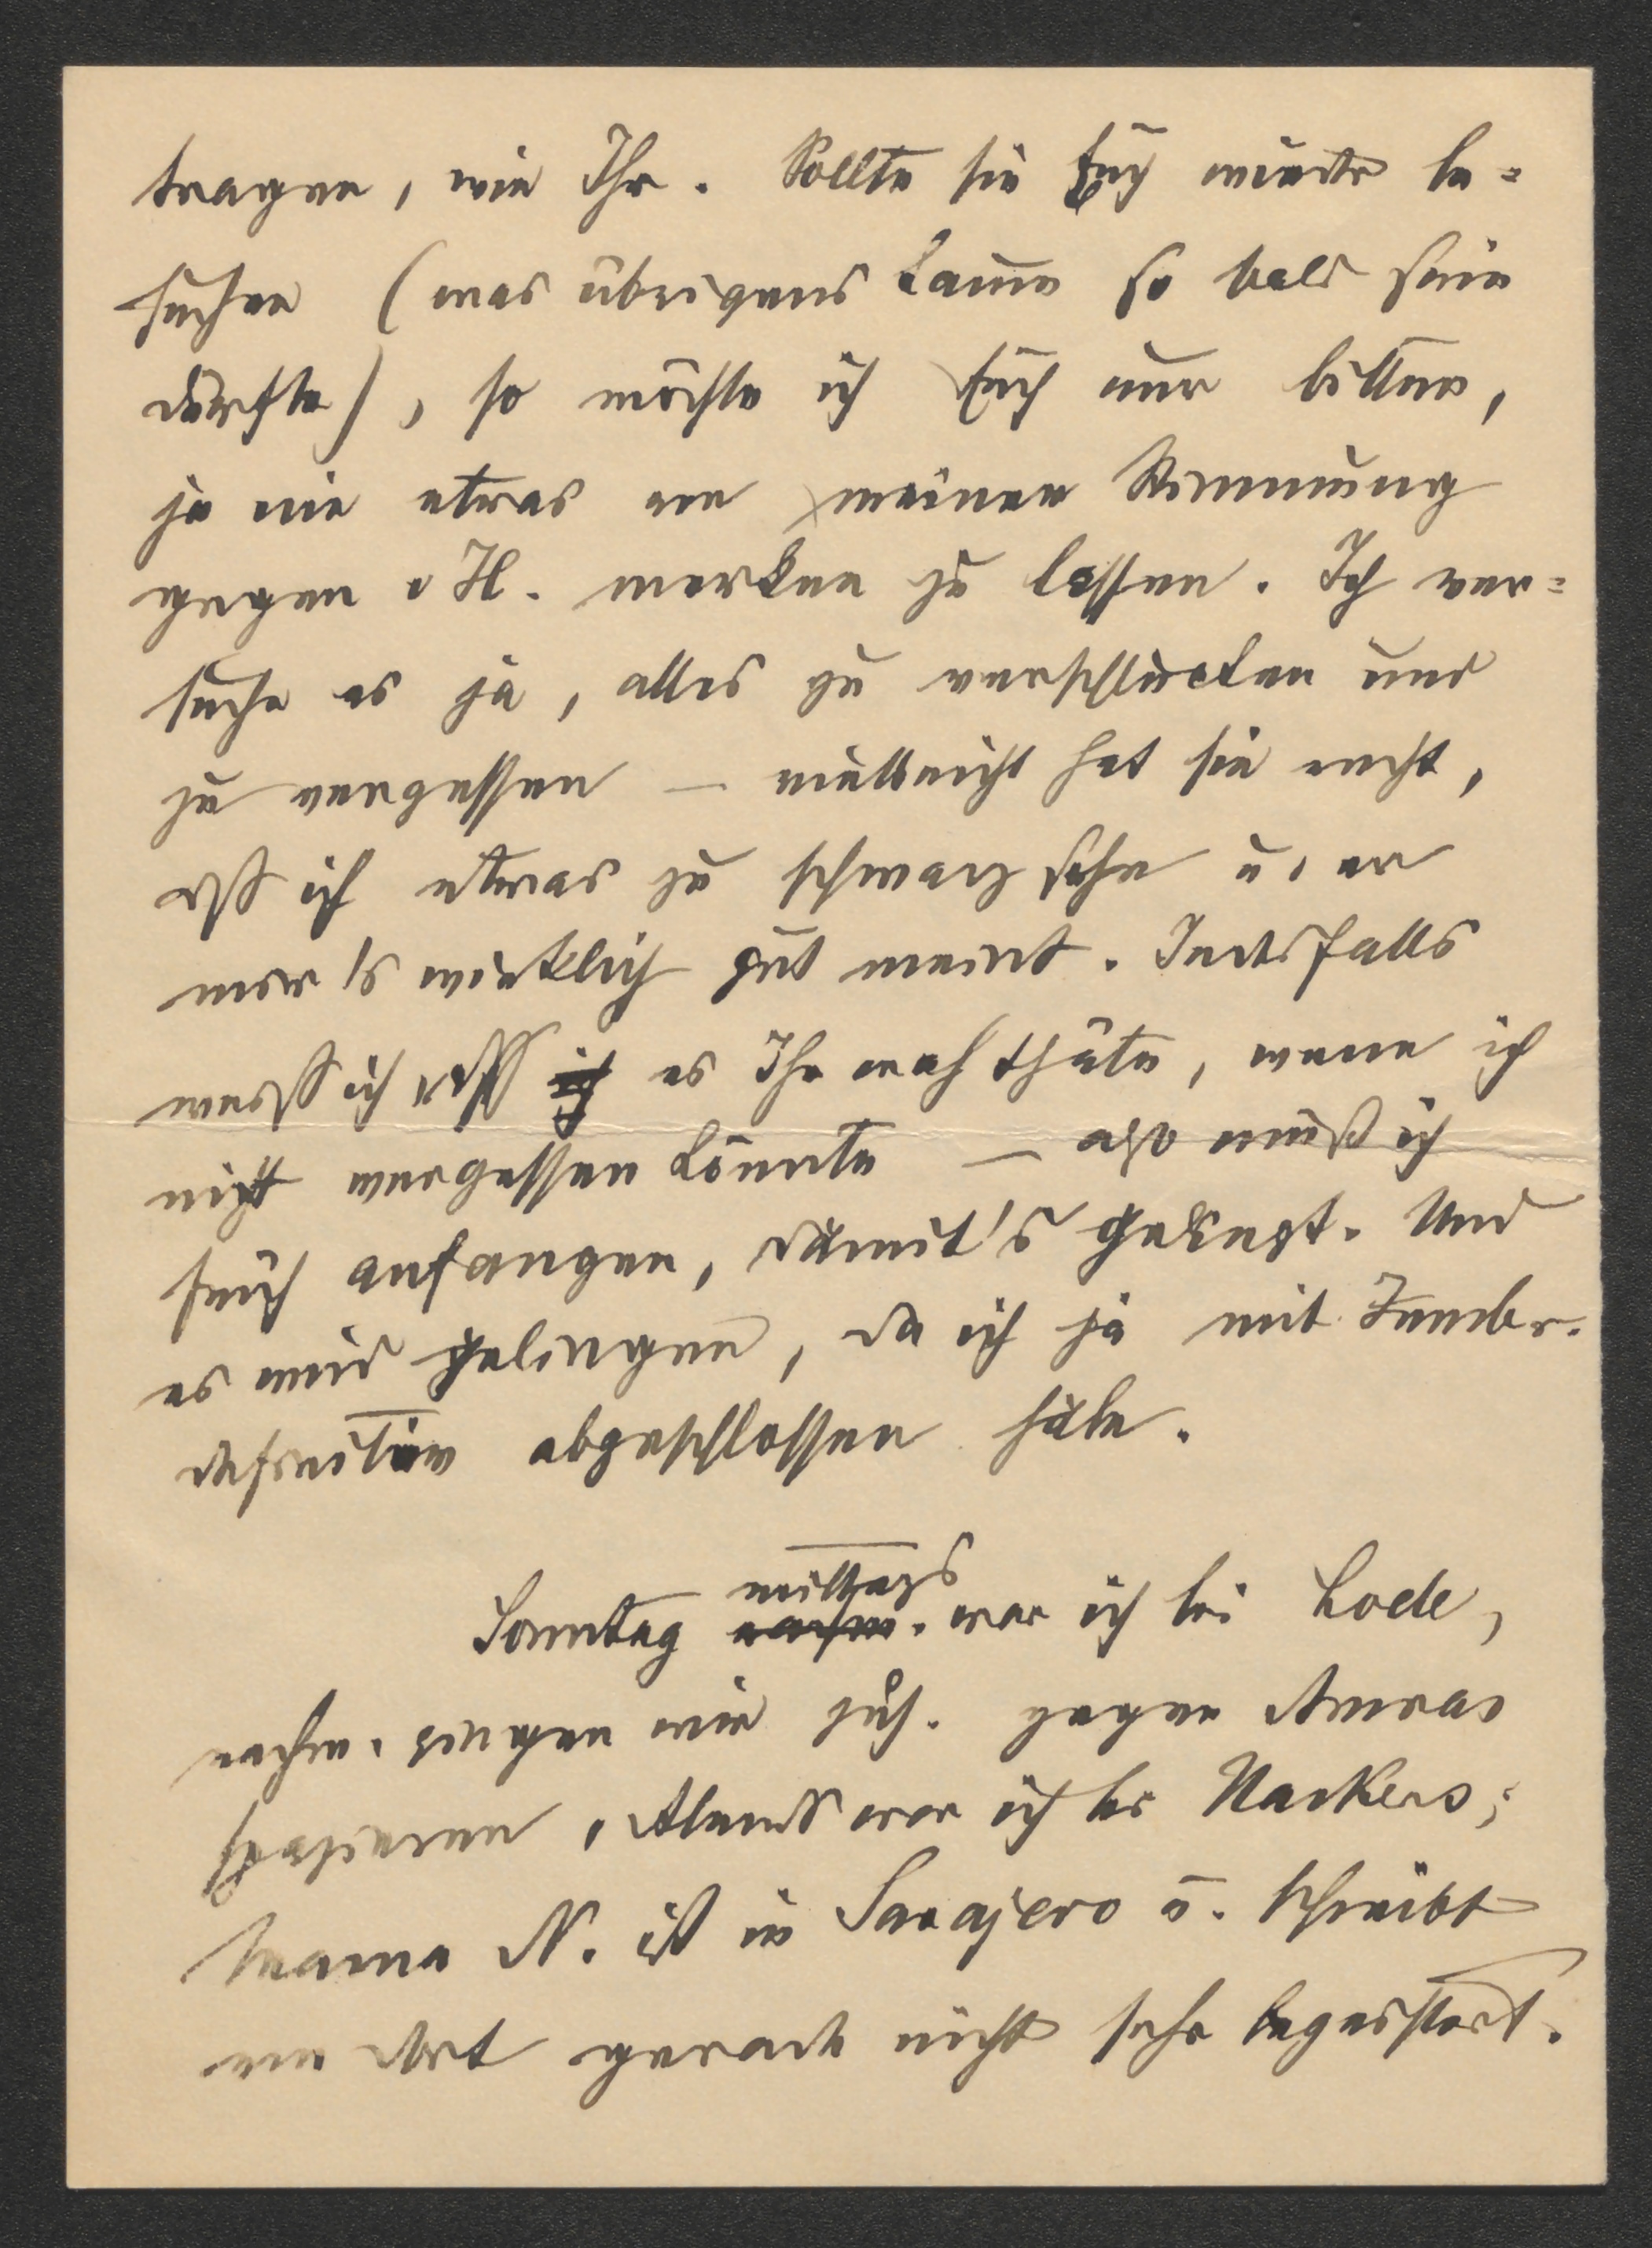 tragen, wie Ihr. Sollte sie Euch wieder be-
suchen (was übrigens kaum so bald sein
dürfte), so möchte ich Euch nur bitten,
ja nie etwas von meiner Stimmung
gegen H. merken zu lassen. Ich ver-
suche es ja, alles zu verschlucken und
zu vergessen — vielleicht hat sie recht,
daß ich etwas zu schwarz sehe u. er
mir's wirklich gut meint. Jedesfalls
weiß ich, daß es Ihr weh thäte, wenn ich
nicht vergessen könnte — also muß ich
früh anfangen, damit's gelingt. Und
es wird gelingen, da ich ja mit
definitiv abgeschlossen habe.
Sonntag mittags war ich bei Lode,
nachm. gingen wir zus. gegen Amras
spazieren, Abends war ich bei Narkers;
Mama N. ist in Sarajevo u. schreibt
von dort gerade nicht sehr begeistert.